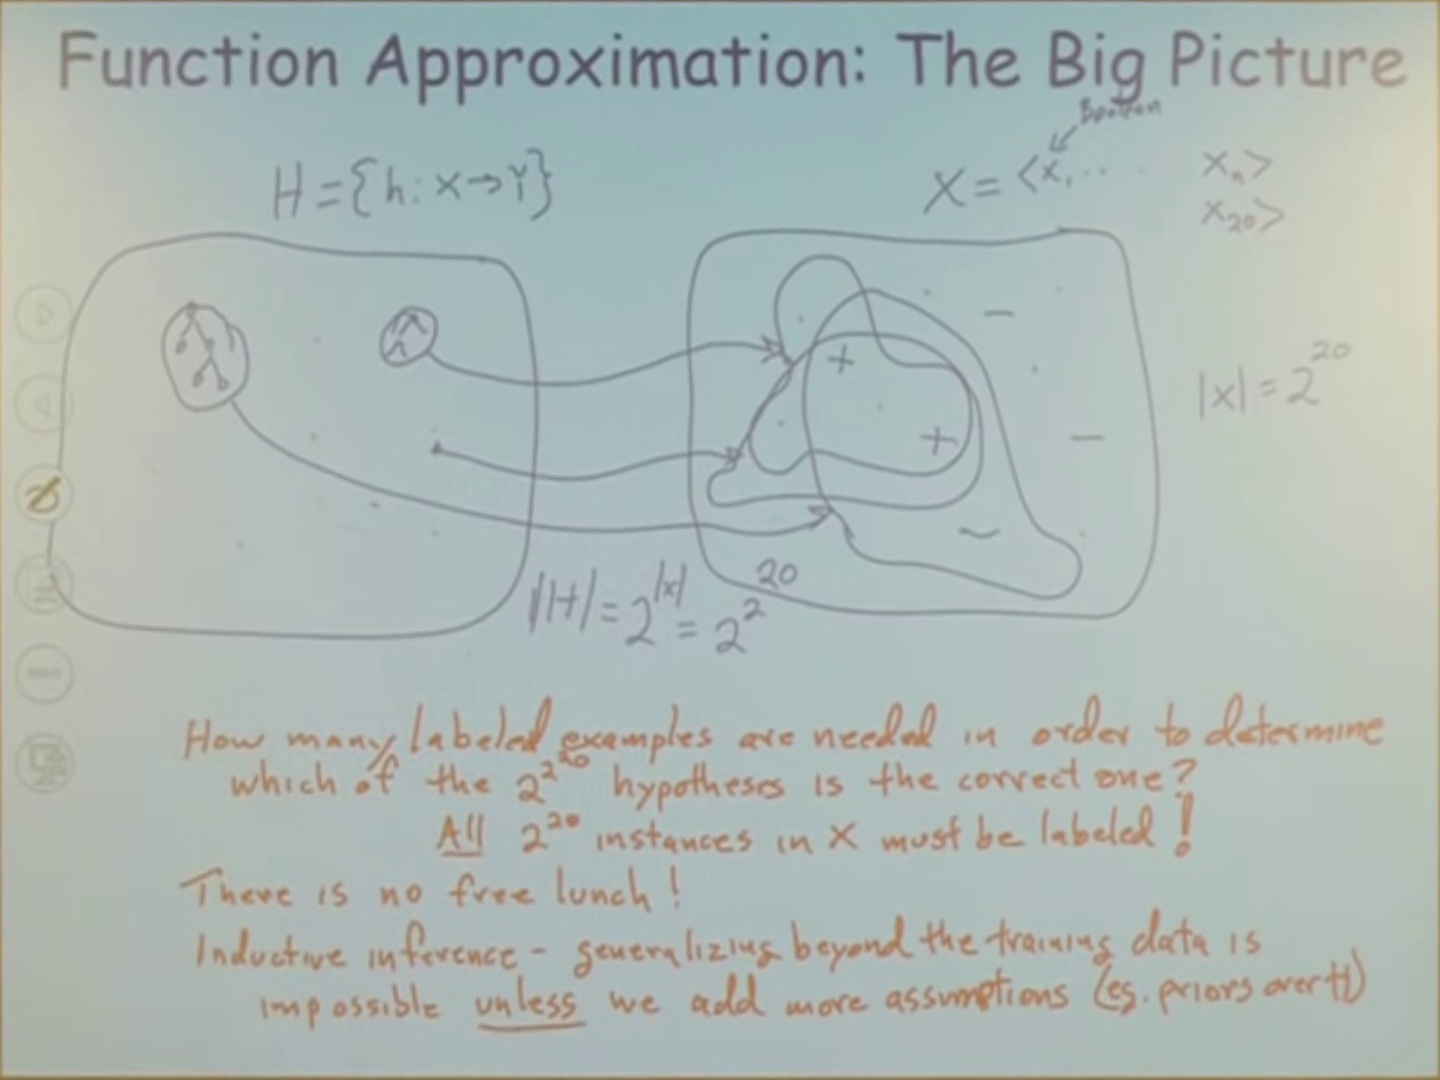 Function Approximation: The Big Picture
Boolean
H = {h: X→Y}
X = <x, .. xₙ>
x₂₀>
+
−
|X| = 2²⁰
+
−
−
|H| = 2^|X| = 2^2^20
How many labeled examples are needed in order to determine
which of the 2^2^20 hypotheses is the correct one?
All 2²⁰ instances in X must be labeled!
There is no free lunch!
Inductive inference - generalizing beyond the training data is
impossible unless we add more assumptions (eg. priors over H)